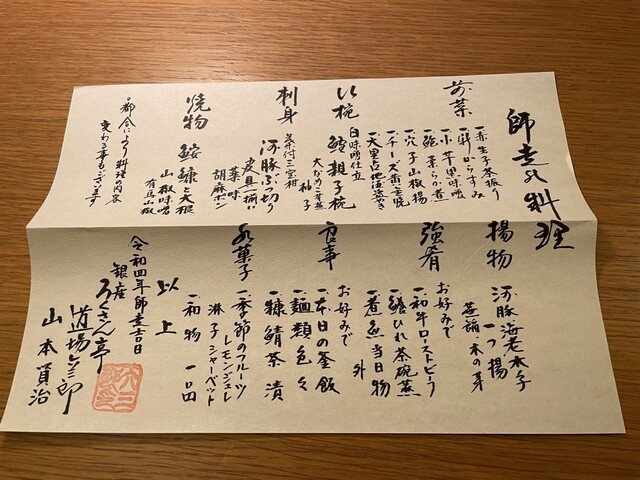 師走の料理
前菜
一、赤生子茶振り
一、新からすみ
一、小芋黒味噌
一、鮑柔らか煮
一、穴子山椒揚
一、チーズ
お椀
鮟親子椀
白味噌仕立
柚子
刺身
河豚ぶつ切り
皮具一揃い
薬味
胡麻ポン
焼物
鮟鱇と大根
山椒味噌
有馬山椒
都合により料理の内容
変わる事もございます
揚物
河豚海老木の子
一つ揚
蓮餅、木の芽
強肴
お好みで
一、和牛ローストビーフ
一、鱶ひれ茶碗蒸
一、煮魚当日物
外
食事
お好みで
一、本日の釜飯
一、麺類色々
一、糠鯖茶漬
水菓子
一、季節のフルーツ
レモンジュレ
淋子シャーベット
一、和物 一口
以上
令和四年師走吉日
銀座
ろくさん亭
道場六三郎
山本賢治